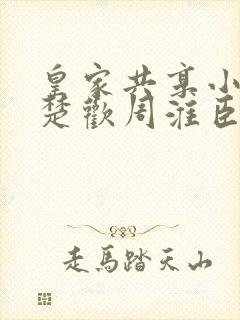 皇家共享小
楚歡周淮臣
走馬踏天山